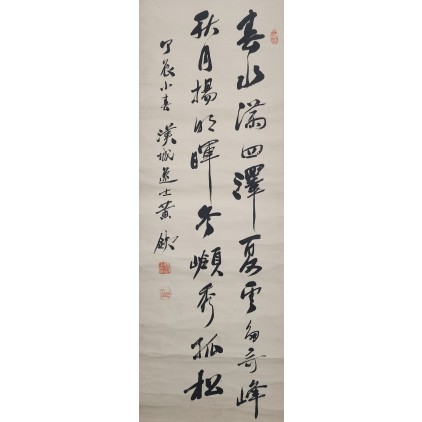 春水滿四澤夏雲多奇峰
秋月揚明暉冬嶺秀孤松
辰小春 漢城逸士黃